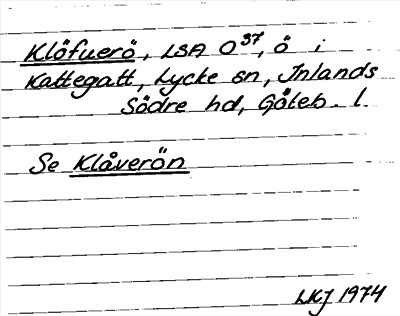 Klöfuerö, LSA O 37, ö i
Kattegatt, Lycke sn, Inlands
Södre hd, Göteb. l.
Se Klåverön
LKJ 1974